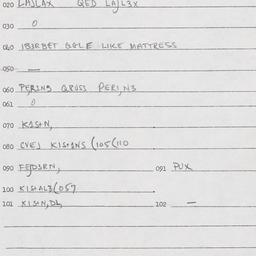 020 LAJLAX QED LAJL3X
030 0
040 IBJRBET GGLE LIKE MATTRESS
050 —
060 PERING GROSS PERIN3
061 0
070 KISIN,
080 CVEJ KISIANS (105(110
090 FEDJRN, 091 PUX
100 KISIAL3(057
101 KISIN,DL, 102 —